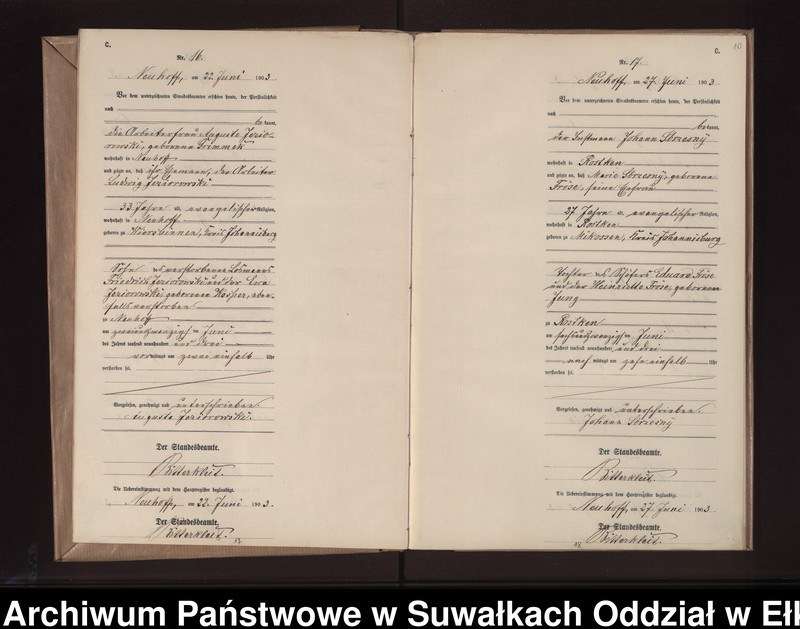 C.
Nr. 16.
Neuhoff, am 22. Juni 1903
Vor dem unterzeichneten Standesbeamten erschien heute, der Persönlichkeit
nach
bekannt,
die Arbeiterfrau Auguste Jezio-
rowski, geborene Grimmek
wohnhaft in Neuhoff
und zeigte an, daß ihr Ehemann, der Arbeiter
Ludwig Jeziorowski
33 Jahre a. evangelischer Religion,
wohnhaft in Neuhoff
geboren zu Kreis Johannisburg
Sohn des verstorbenen
Friedrich Jeziorowski und der Eva
Jeziorowski, geborenen eben-
falls verstorben
in Neuhoff
am zweiundzwanzigsten Juni
des Jahres tausend neunhundert und drei
vormittags um zwei einhalb Uhr
verstorben sei.
Vorgelesen, genehmigt und unterschrieben
Auguste Jeziorowski.
Der Standesbeamte.
Ritterkleit.
Die Uebereinstimmung mit dem Hauptregister beglaubigt.
Neuhoff, am 22. Juni 1903.
Der Standesbeamte.
Ritterkleit.
C.
10
Nr. 17.
Neuhoff, am 27. Juni 1903
Vor dem unterzeichneten Standesbeamten erschien heute, der Persönlichkeit
nach
bekannt,
der Instmann Johann Strzesny
wohnhaft in Rostken
und zeigte an, daß Marie Strzesny, geborene
Fröse, seine Ehefrau
27 Jahre a. evangelischer Religion,
wohnhaft in Rostken
geboren zu Mikossen, Kreis Johannisburg
Tochter des Schäfers Eduard Fröse
und der Heinriette Fröse, geborenen
Jung
zu Rostken
am sechsundzwanzigsten Juni
des Jahres tausend neunhundert und drei
nachmittags um zehn einhalb Uhr
verstorben sei.
Vorgelesen, genehmigt und unterschrieben.
Johann Strzesny
Der Standesbeamte.
Ritterkleit.
Die Uebereinstimmung mit dem Hauptregister beglaubigt.
Neuhoff, am 27. Juni 1903
Der Standesbeamte.
Ritterkleit.
Archiwum Państwowe w Suwałkach Oddział w Ełk